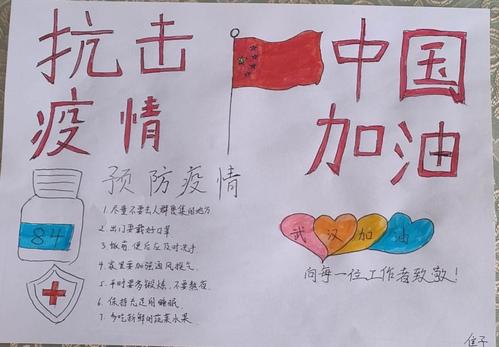 抗击
疫情
中国
加油
预防疫情
1.尽量不要去人群聚集的地方
2.出门要戴好口罩
3.饭前便后应及时洗手
4.家里要加强通风换气
5.平时要多锻炼,不要熬夜
6.保持充足用睡眠
7.多吃新鲜的蔬菜水果
84
武汉加油
向每一位工作者致敬!